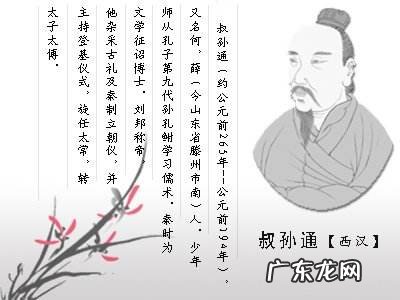 叔孙通（约公元前265年--公元前194年）。
又名何，薛（今山东省滕州市南）人。少年
师从孔子第九代孙孔鲋学习儒术。秦时为
文学征诏博士。刘邦称帝
他杂采古礼及秦制立朝仪。并
主持登基仪式。旋任太常。转
太子太傅。
叔孙通【西汉】
广东龙网